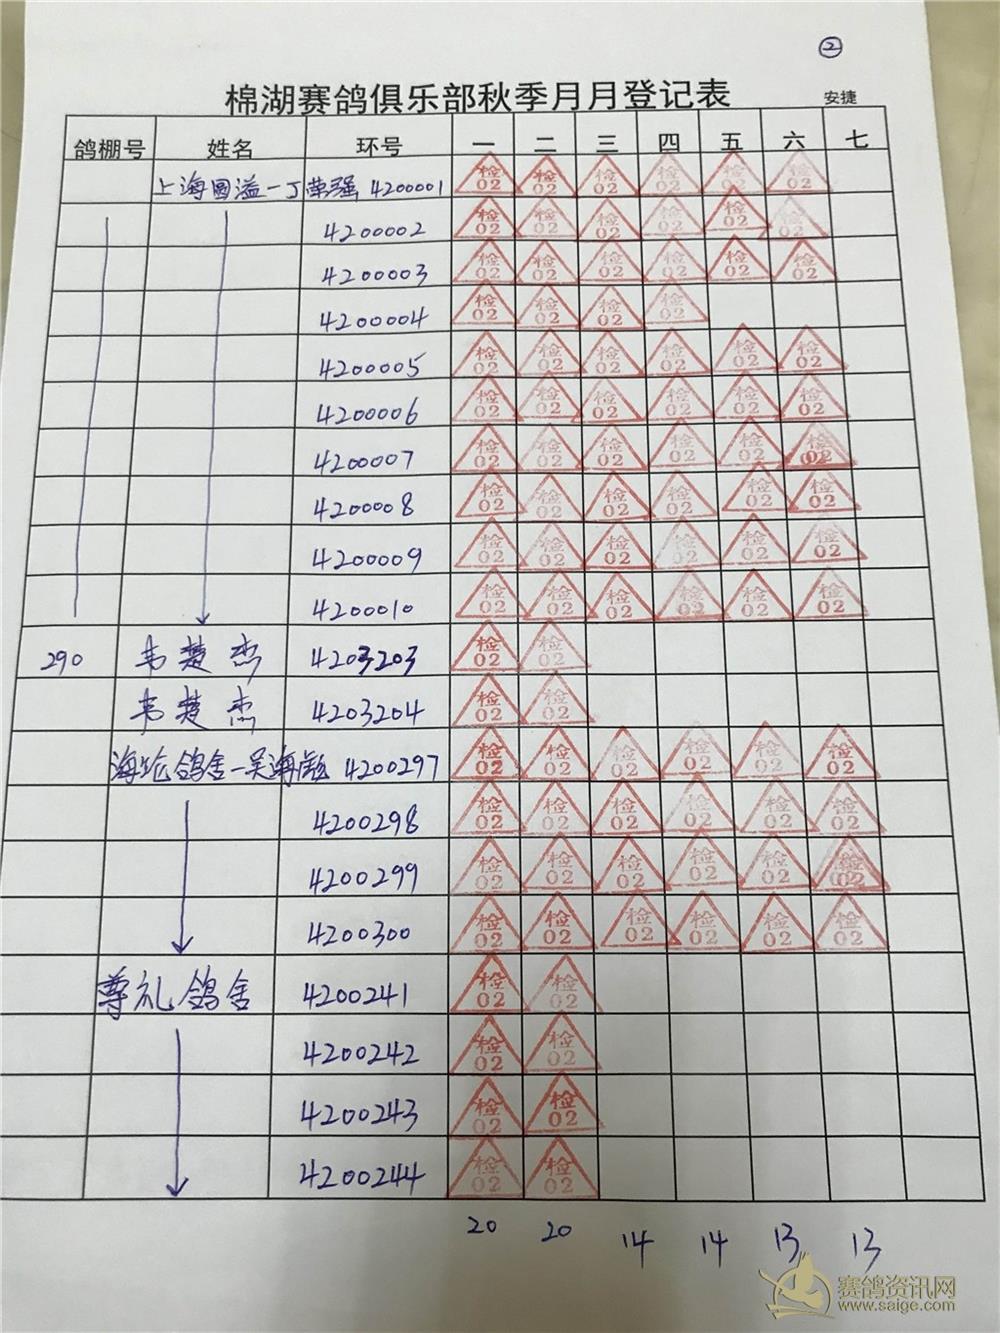 ②
棉湖赛鸽俱乐部秋季月月登记表 安捷
鸽棚号 姓名 环号 一 二 三 四 五 六 七
上海国溢一丁荣强 4200001 检02 检02 检02 检02 检02 检02
4200002 检02 检02 检02 检02 检02 检02
4200003 检02 检02 检02 检02 检02 检02
4200004 检02 检02 检02 检02
4200005 检02 检02 检02 检02 检02 检02
4200006 检02 检02 检02 检02 检02 检02
4200007 检02 检02 检02 检02 检02 检02
4200008 检02 检02 检02 检02 检02 检02
4200009 检02 检02 检02 检02 检02 检02
4200010 检02 检02 检02 检02 检02 检02
290 韦楚杰 4203203 检02 检02
韦楚杰 4203204 检02 检02
鸽舍-吴海 4200297 检02 检02 检02 检02 检02 检02
4200298 检02 检02 检02 检02 检02 检02
4200299 检02 检02 检02 检02 检02 检02
4200300 检02 检02 检02 检02 检02 检02
尊礼鸽舍 4200241 检02 检02
4200242 检02 检02
4200243 检02 检02
4200244 检02 检02
20 20 14 14 13 13
赛鸽资讯网
www.saige.com